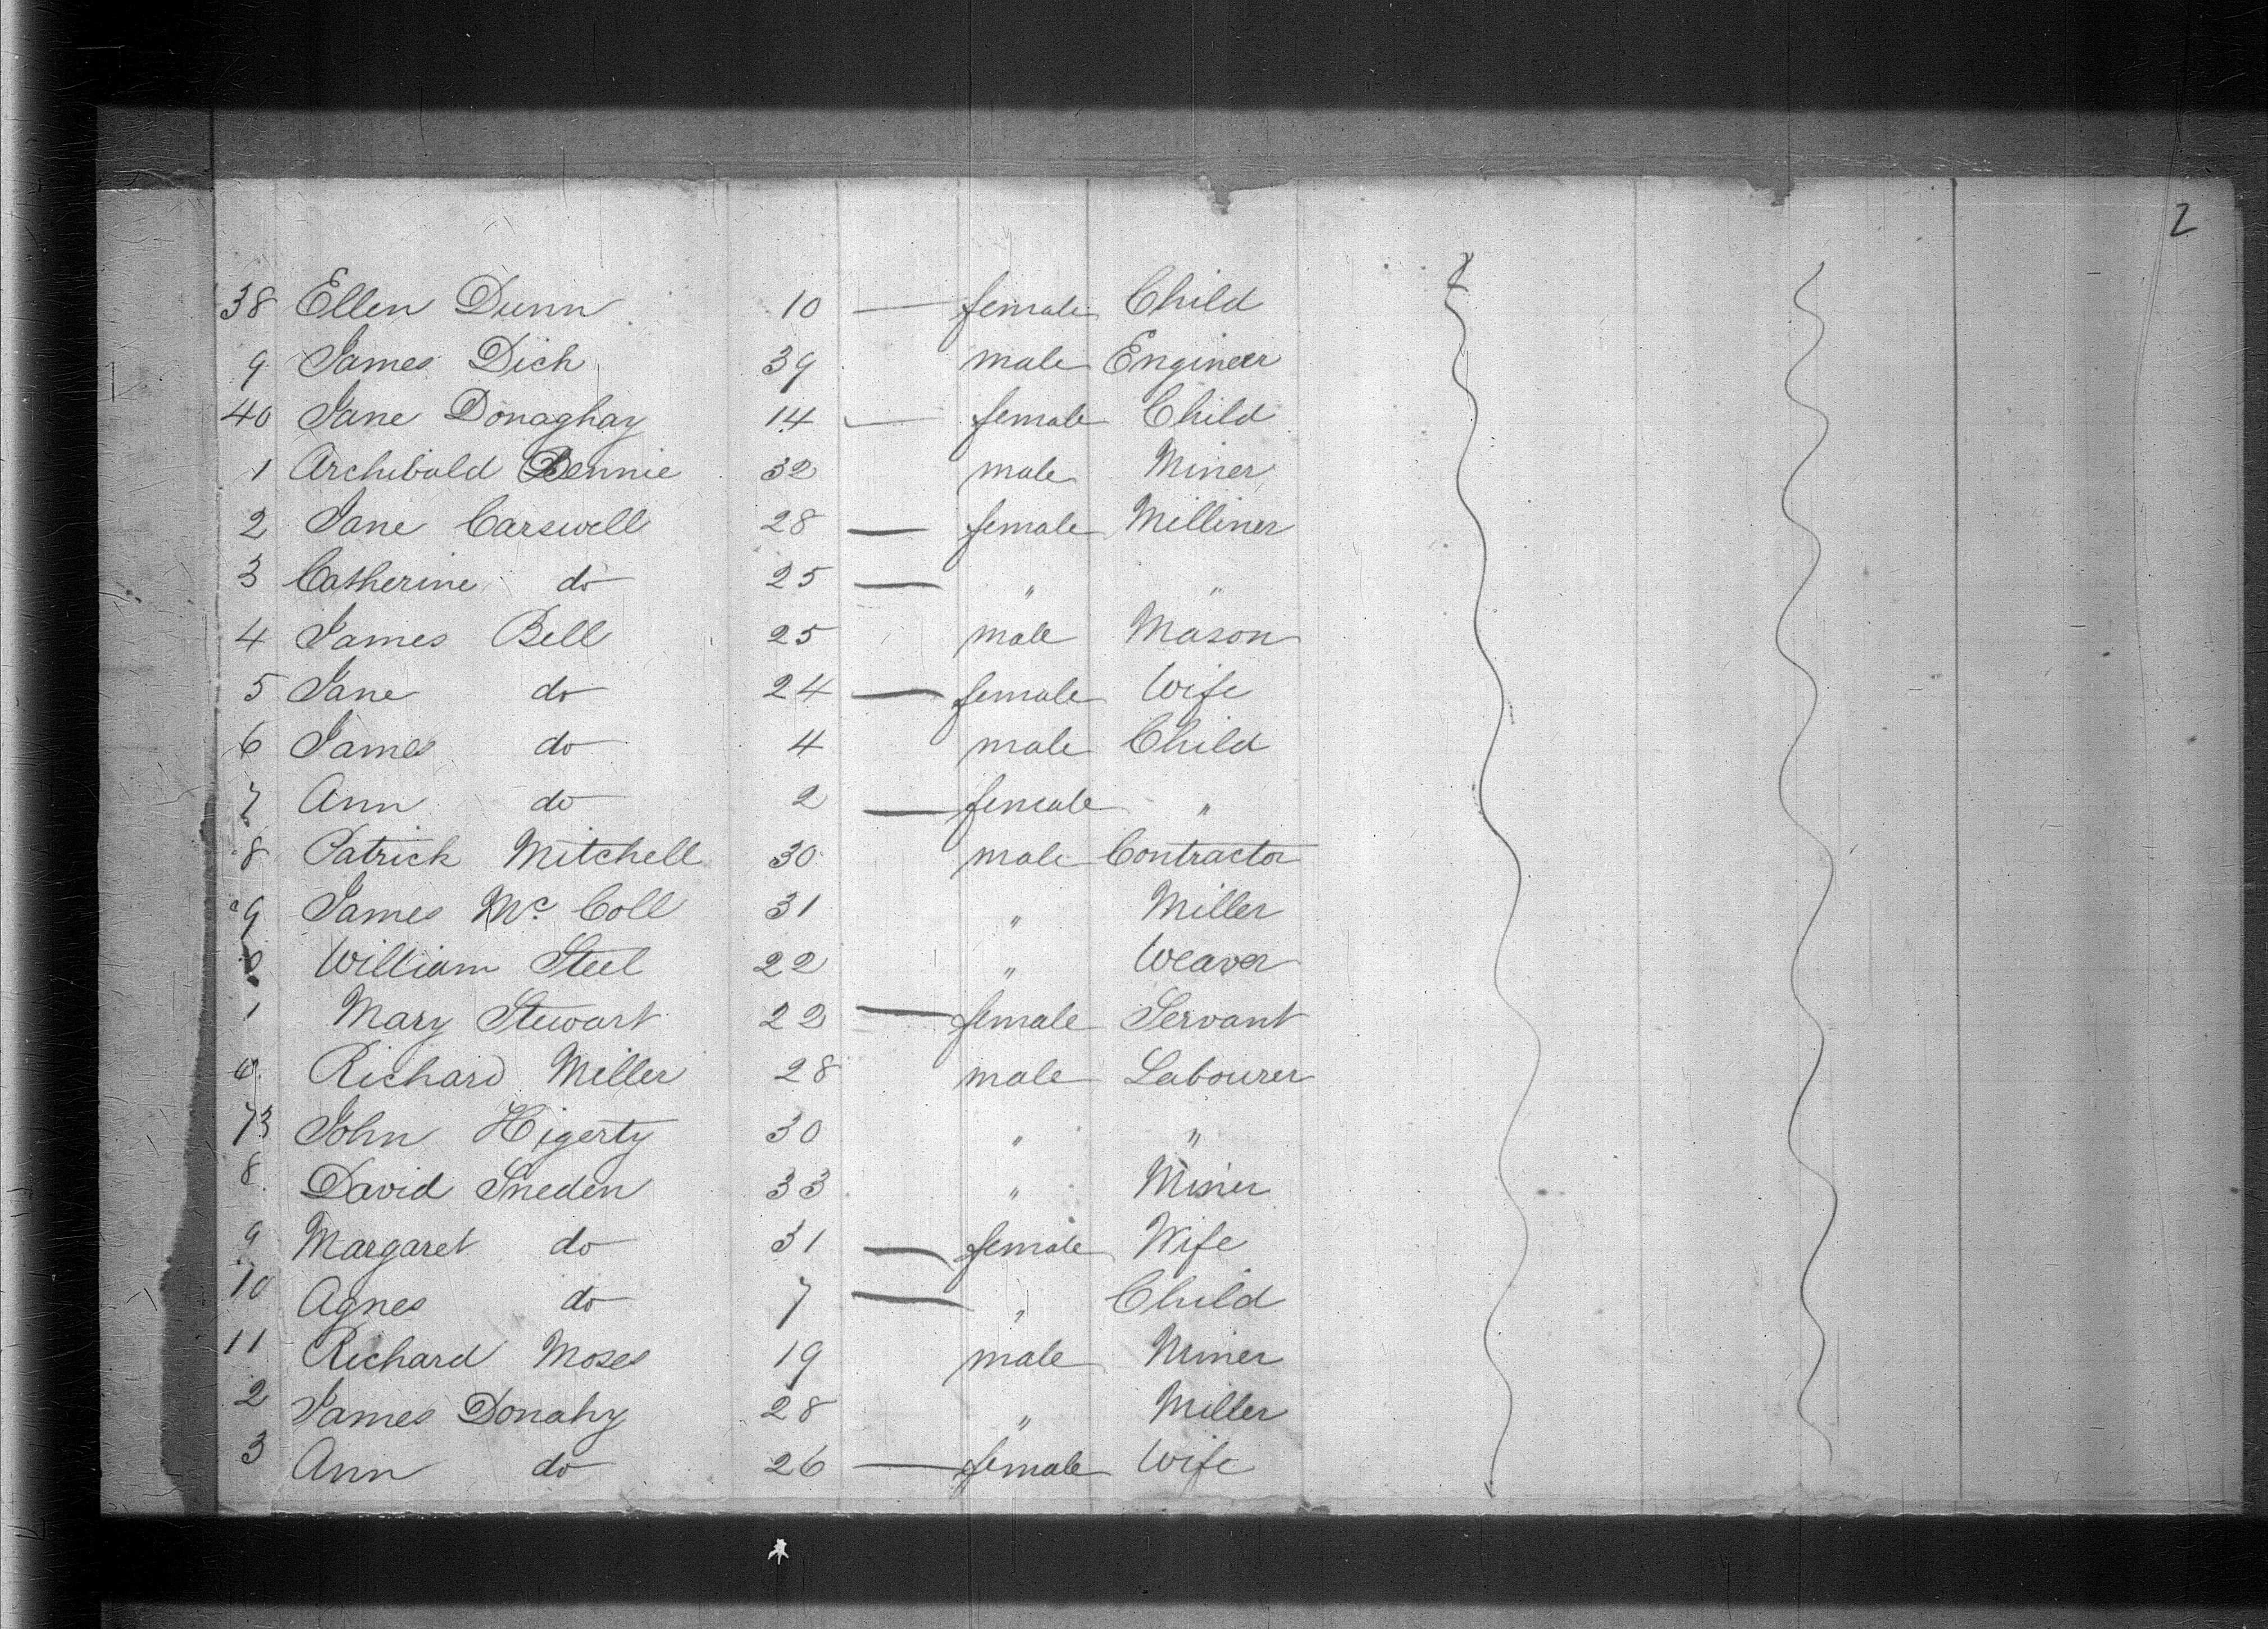 2
38 Ellen Dunn 10 — female Child
9 James Dich 39 male Engineer
40 Jane Donaghay 14 — female Child
1 Archibald Dennie 32 male Miner
2 Jane Carswell 28 — female Milliner
3 Catherine do 25 — " "
4 James Bell 25 male Mason
5 Jane do 24 — female Wife
6 James do 4 male Child
7 Ann do 2 — female "
8 Patrick Mitchell 30 male Contractor
9 James Mc Coll 31 " Miller
William Steel 22 " Weaver
1 Mary Stewart 22 — female Servant
Richard Miller 28 male Labourer
73 John Higerty 30 " "
8 David Sneden 33 " Miner
9 Margaret do 31 — female Wife
10 Agnes do 7 — " Child
11 Richard Moses 19 male Miner
2 James Donahy 28 " Miller
3 Ann do 26 — female Wife